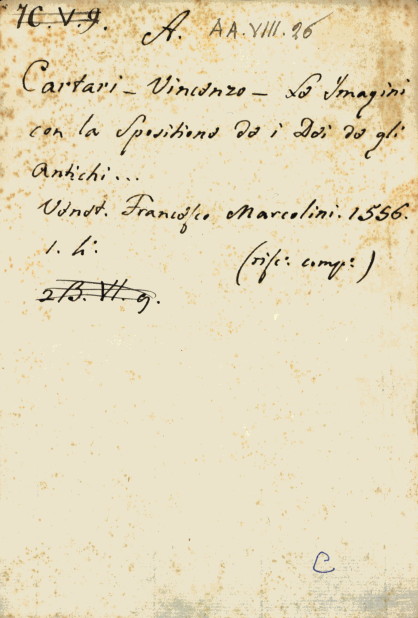 7C.V.9. A. AA.VIII.26
Cartari - Vincenzo - Le Imagini
con la Spositione de i Dei de gli
Antichi...
Venet. Francesco Marcolini. 1556.
1. 4°.
(risc.° comp.°)
2B.VI.9.
C